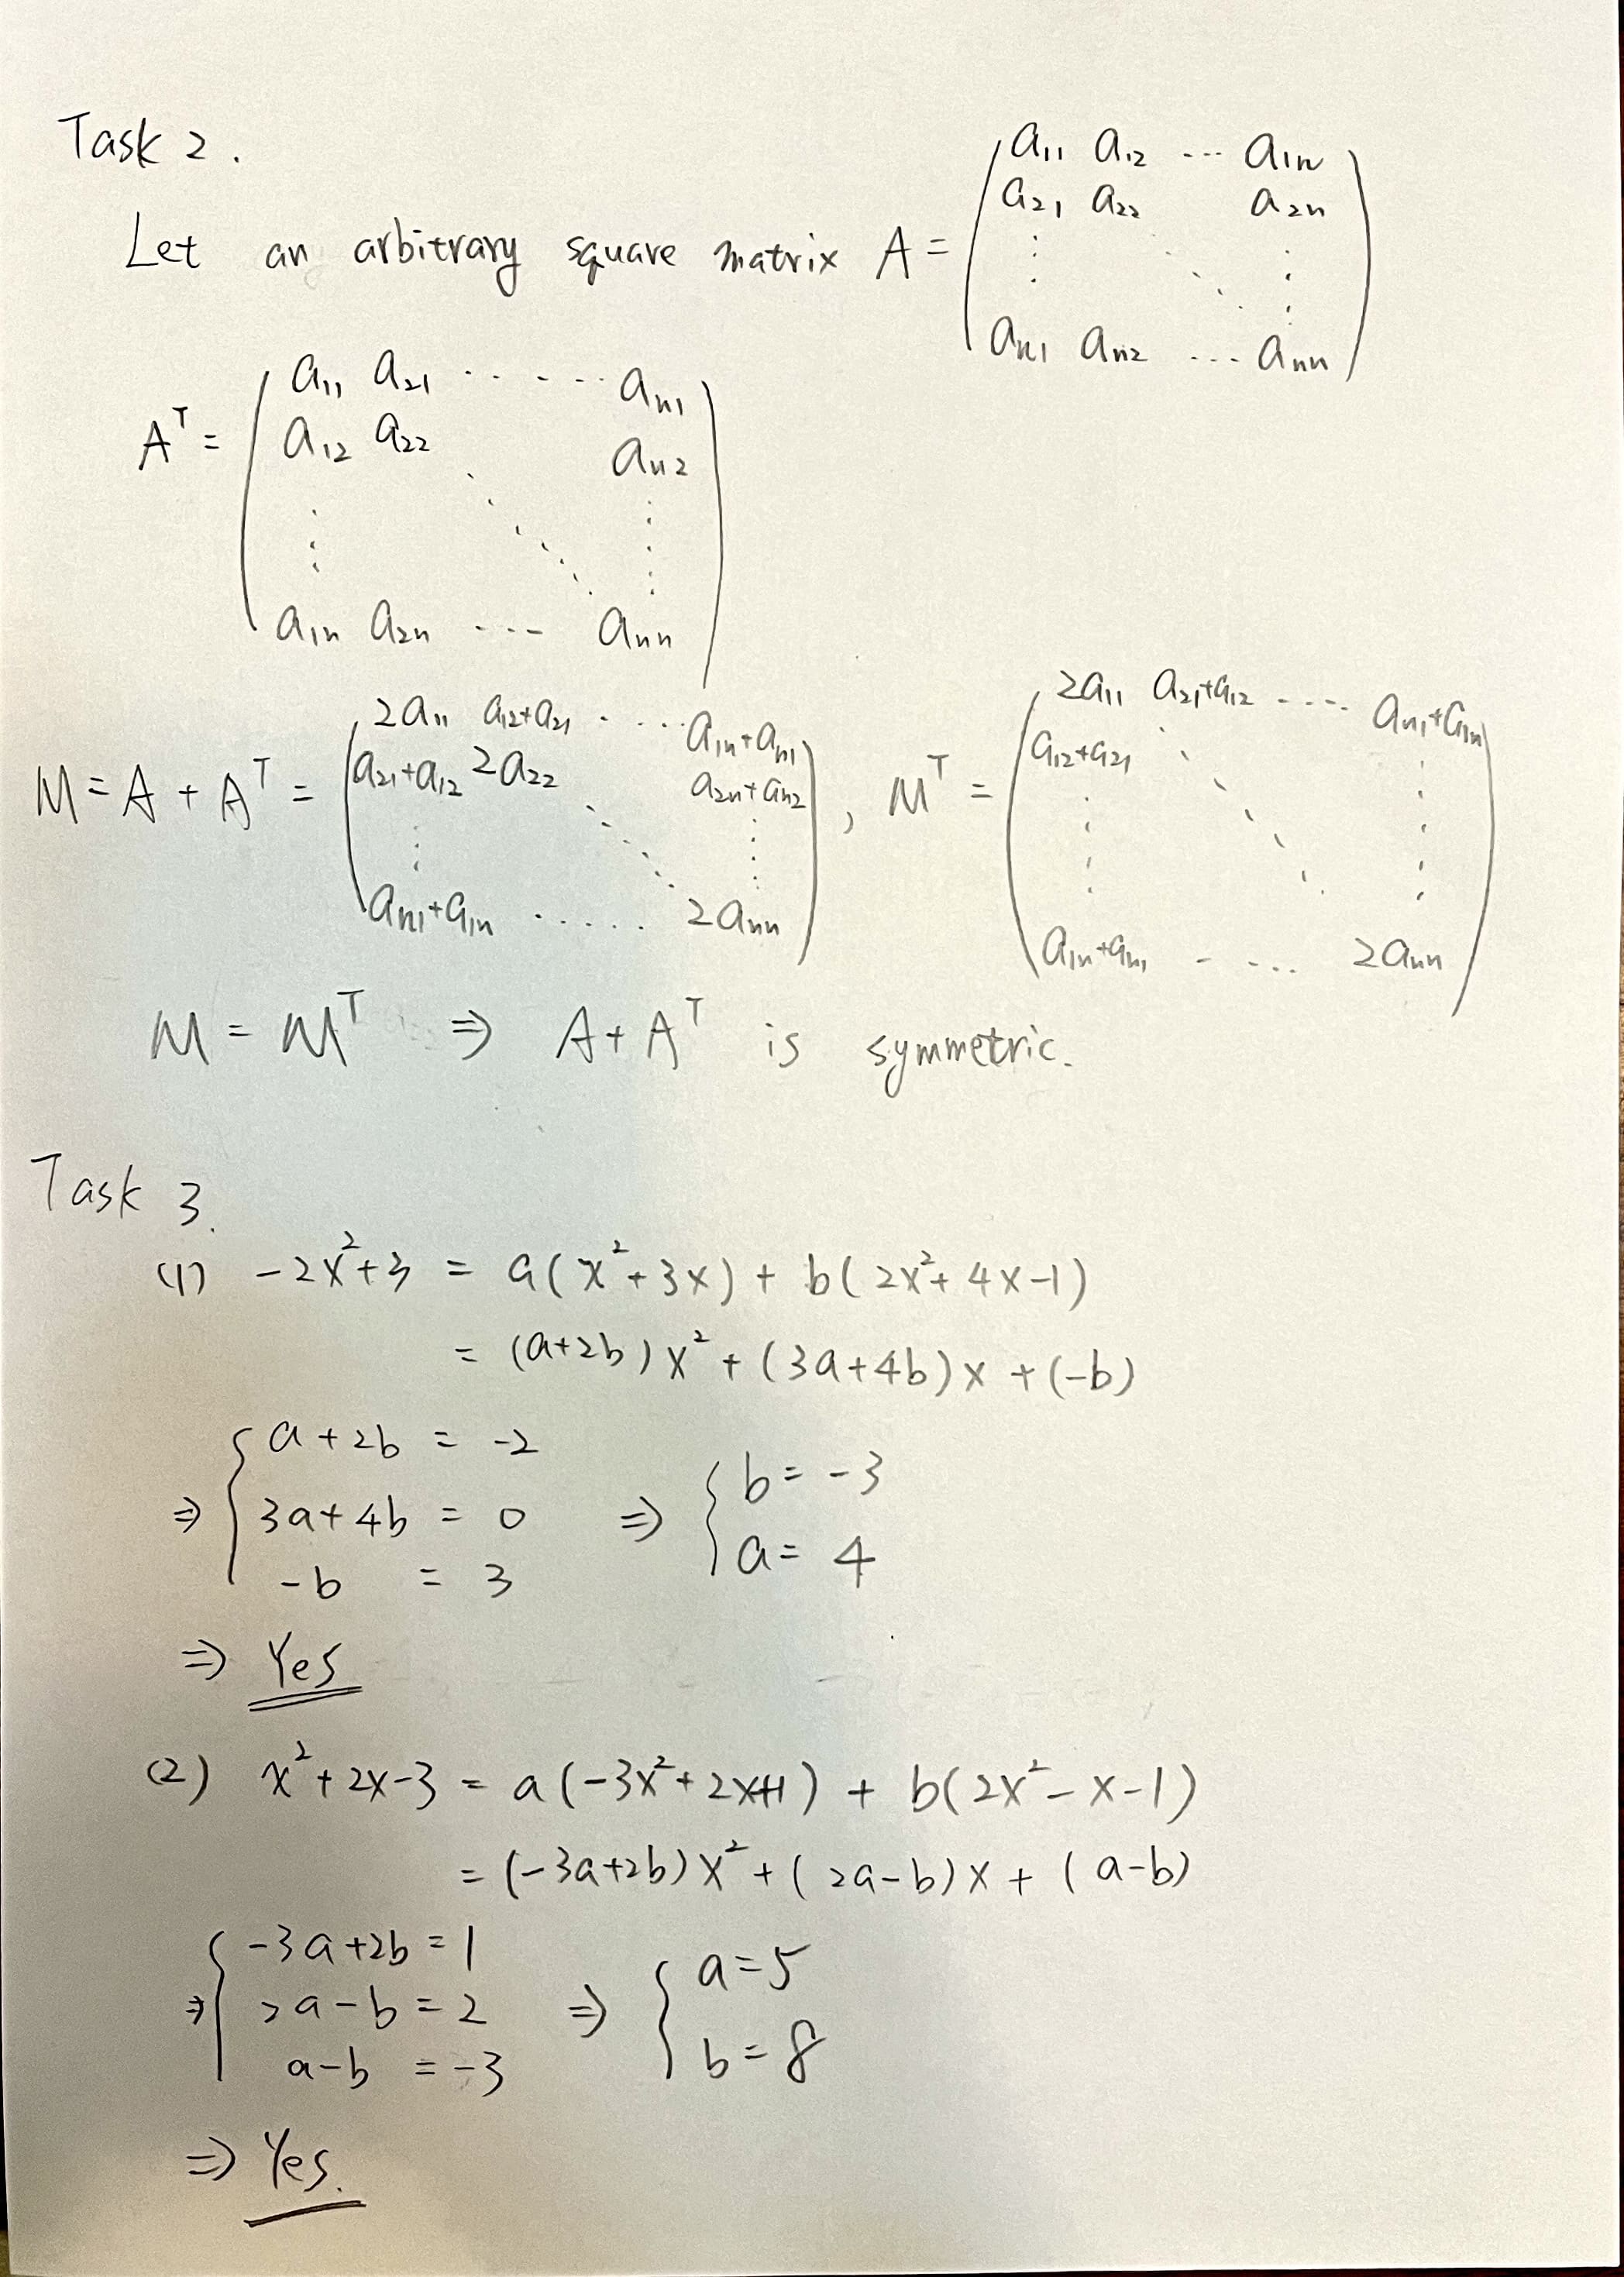 Task 2.
Let an arbitrary square matrix A = ( a₁₁ a₁₂ ... a₁ₙ
a₂₁ a₂₂ a₂ₙ
⋮ ⋱ ⋮
aₙ₁ aₙ₂ ... aₙₙ )
Aᵀ = ( a₁₁ a₂₁ ... aₙ₁
a₁₂ a₂₂ aₙ₂
⋮ ⋱ ⋮
a₁ₙ a₂ₙ ... aₙₙ )
M = A + Aᵀ = ( 2a₁₁ a₁₂+a₂₁ ... a₁ₙ+aₙ₁
a₂₁+a₁₂ 2a₂₂ a₂ₙ+aₙ₂
⋮ ⋱ ⋮
aₙ₁+a₁ₙ ... 2aₙₙ ) ,
Mᵀ = ( 2a₁₁ a₂₁+a₁₂ ... aₙ₁+a₁ₙ
a₁₂+a₂₁
⋮ ⋱ ⋮
a₁ₙ+aₙ₁ ... 2aₙₙ )
M = Mᵀ ⇒ A + Aᵀ is symmetric.
Task 3.
(1) -2x²+3 = a(x²+3x) + b(2x²+4x-1)
= (a+2b)x² + (3a+4b)x + (-b)
⇒ { a+2b = -2
3a+4b = 0
-b = 3
⇒ { b = -3
a = 4
⇒ Yes
(2) x²+2x-3 = a(-3x²+2x+1) + b(2x²-x-1)
= (-3a+2b)x² + (2a-b)x + (a-b)
⇒ { -3a+2b = 1
2a-b = 2
a-b = -3
⇒ { a=5
b=8
⇒ Yes.